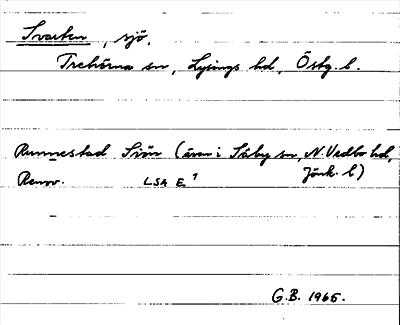 Svarten, sjö.
Trehörna sn, Lysings hd, Östg. l.
Runnestad Siön (även i Säby sn, N. Vedbo hd, Jönk. l)
Renov. LSA E 1
G.B. 1965.